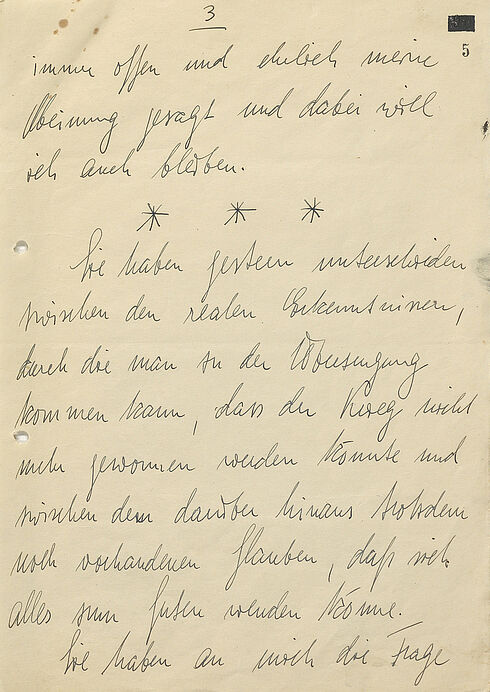 3
5
immer offen und ehrlich meine
Meinung gesagt und dabei will
ich auch bleiben.
* * *
Sie haben gestern unterschieden
zwischen den realen Erkenntnissen,
durch die man zu der Überzeugung
kommen kann, dass der Krieg nicht
mehr gewonnen werden könnte und
zwischen dem darüber hinaus trotzdem
noch vorhandenen Glauben, daß sich
alles zum Guten wenden könne.
Sie haben an mich die Frage